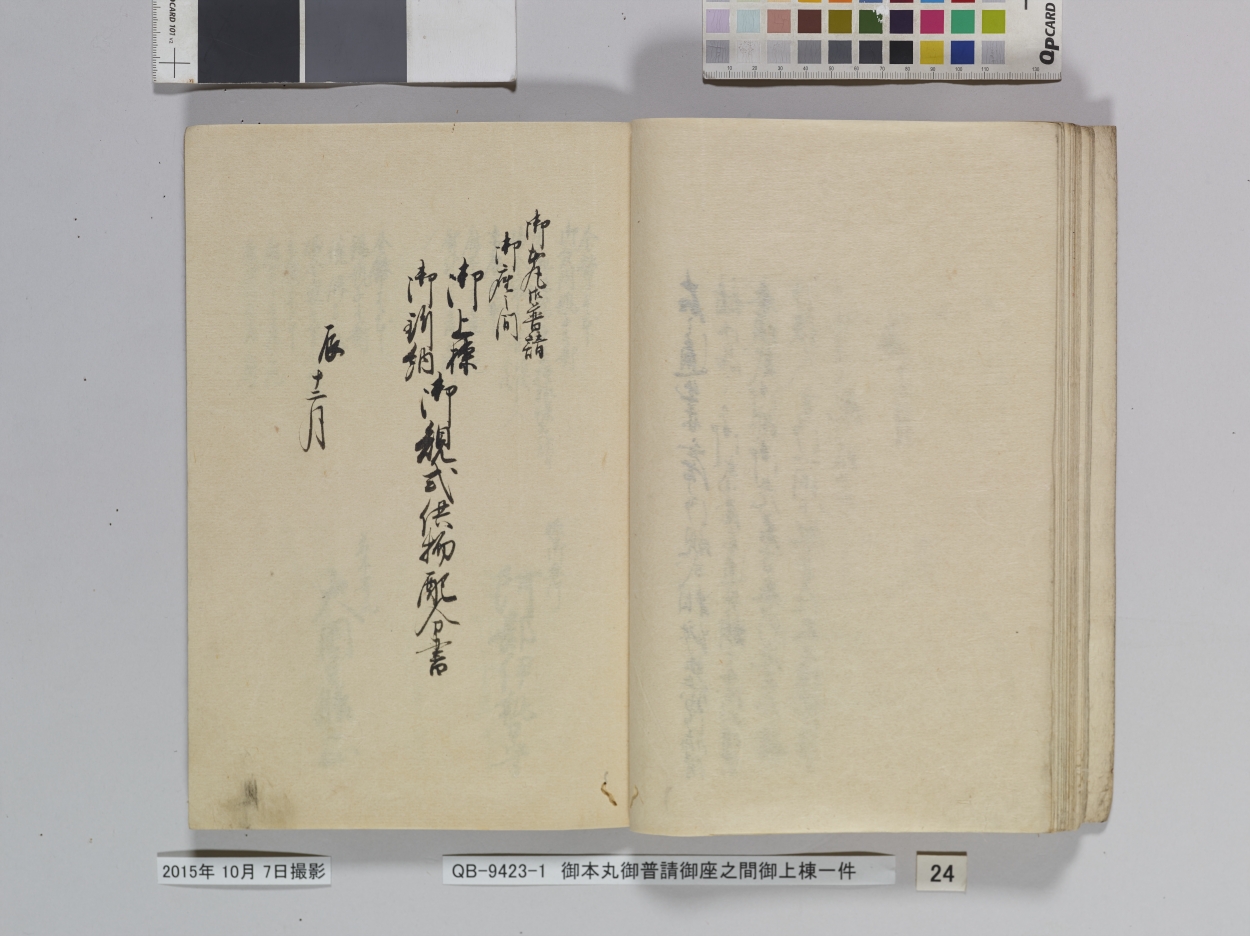 御本丸御普請
御座之間
御上棟
御釿納
御規式供物配分書
辰十二月
2015年 10月 7日撮影
QB-9423-1 御本丸御普請御座之間御上棟一件
24
QPCARD 101 v3
QPCARD